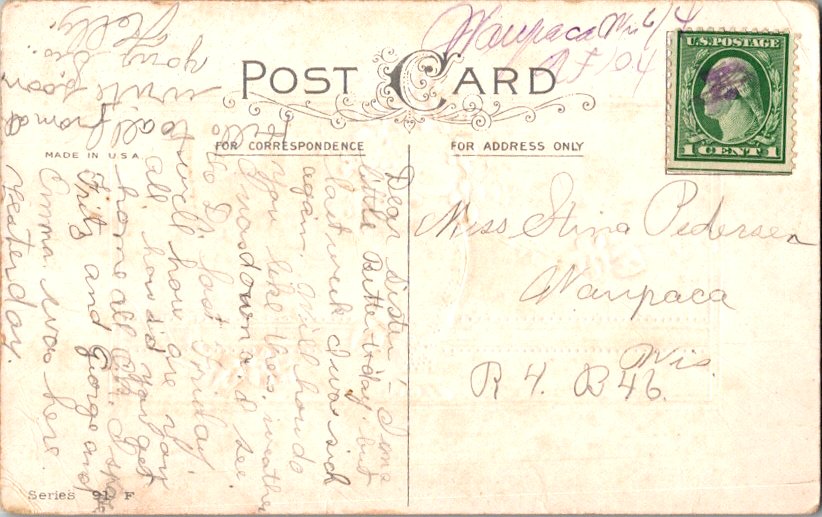 Waupaca Wis 6/4
RFD 4
U.S. POSTAGE
1 CENT 1
POST CARD
FOR CORRESPONDENCE
FOR ADDRESS ONLY
MADE IN U.S.A.
Miss Stina Pedersen
Waupaca
Wis.
R 4. B 46.
Dear Sister - I am a
little Better today but
last week I was sick
again. Will how do
you like this weather
I was down and see
the Dr. last Friday.
well how are you
all. how did you get
home all
Fritz and George and
Emma was here
yesterday.
Hello
to all from a
write soon
your sis.
Series 91 F